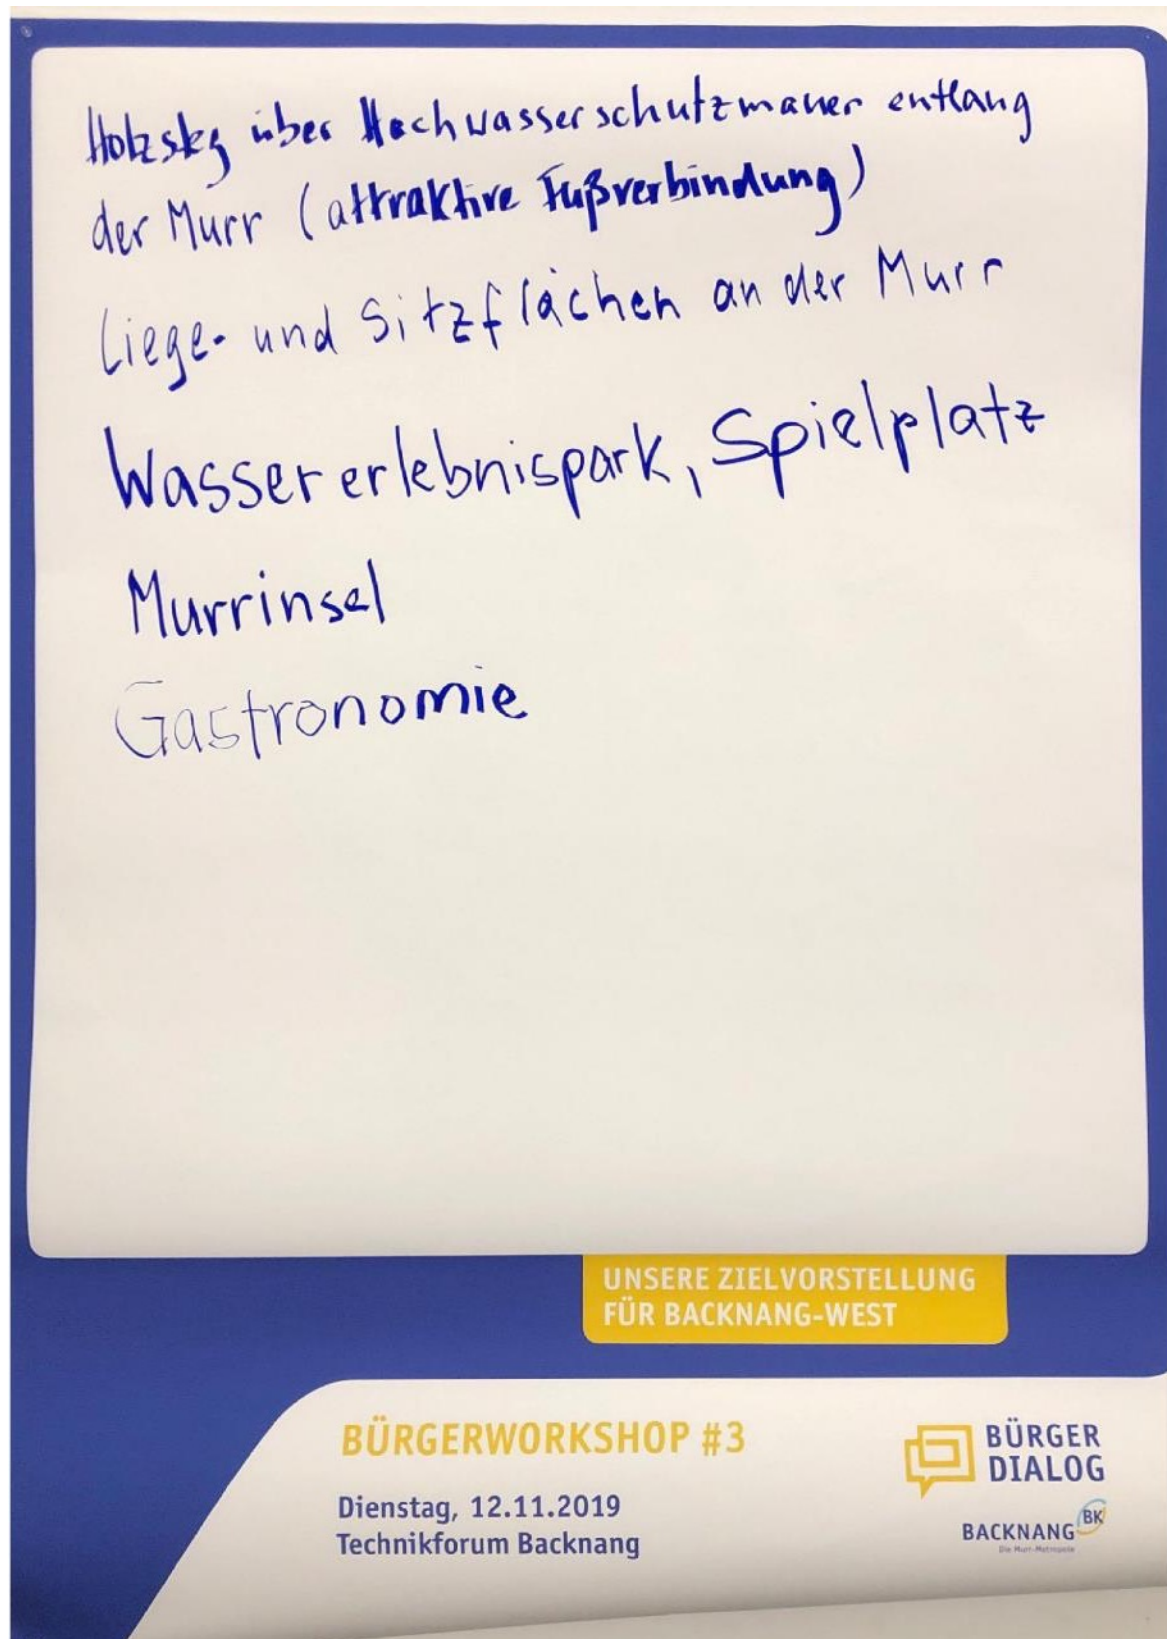 Holzsteg über Hochwasserschutzmauer entlang
der Murr (attraktive Fußverbindung)
Liege- und Sitzflächen an der Murr
Wassererlebnispark, Spielplatz
Murrinsel
Gastronomie
UNSERE ZIELVORSTELLUNG
FÜR BACKNANG-WEST
BÜRGERWORKSHOP #3
Dienstag, 12.11.2019
Technikforum Backnang
BÜRGER
DIALOG
BACKNANG BK
Die Murr-Metropole